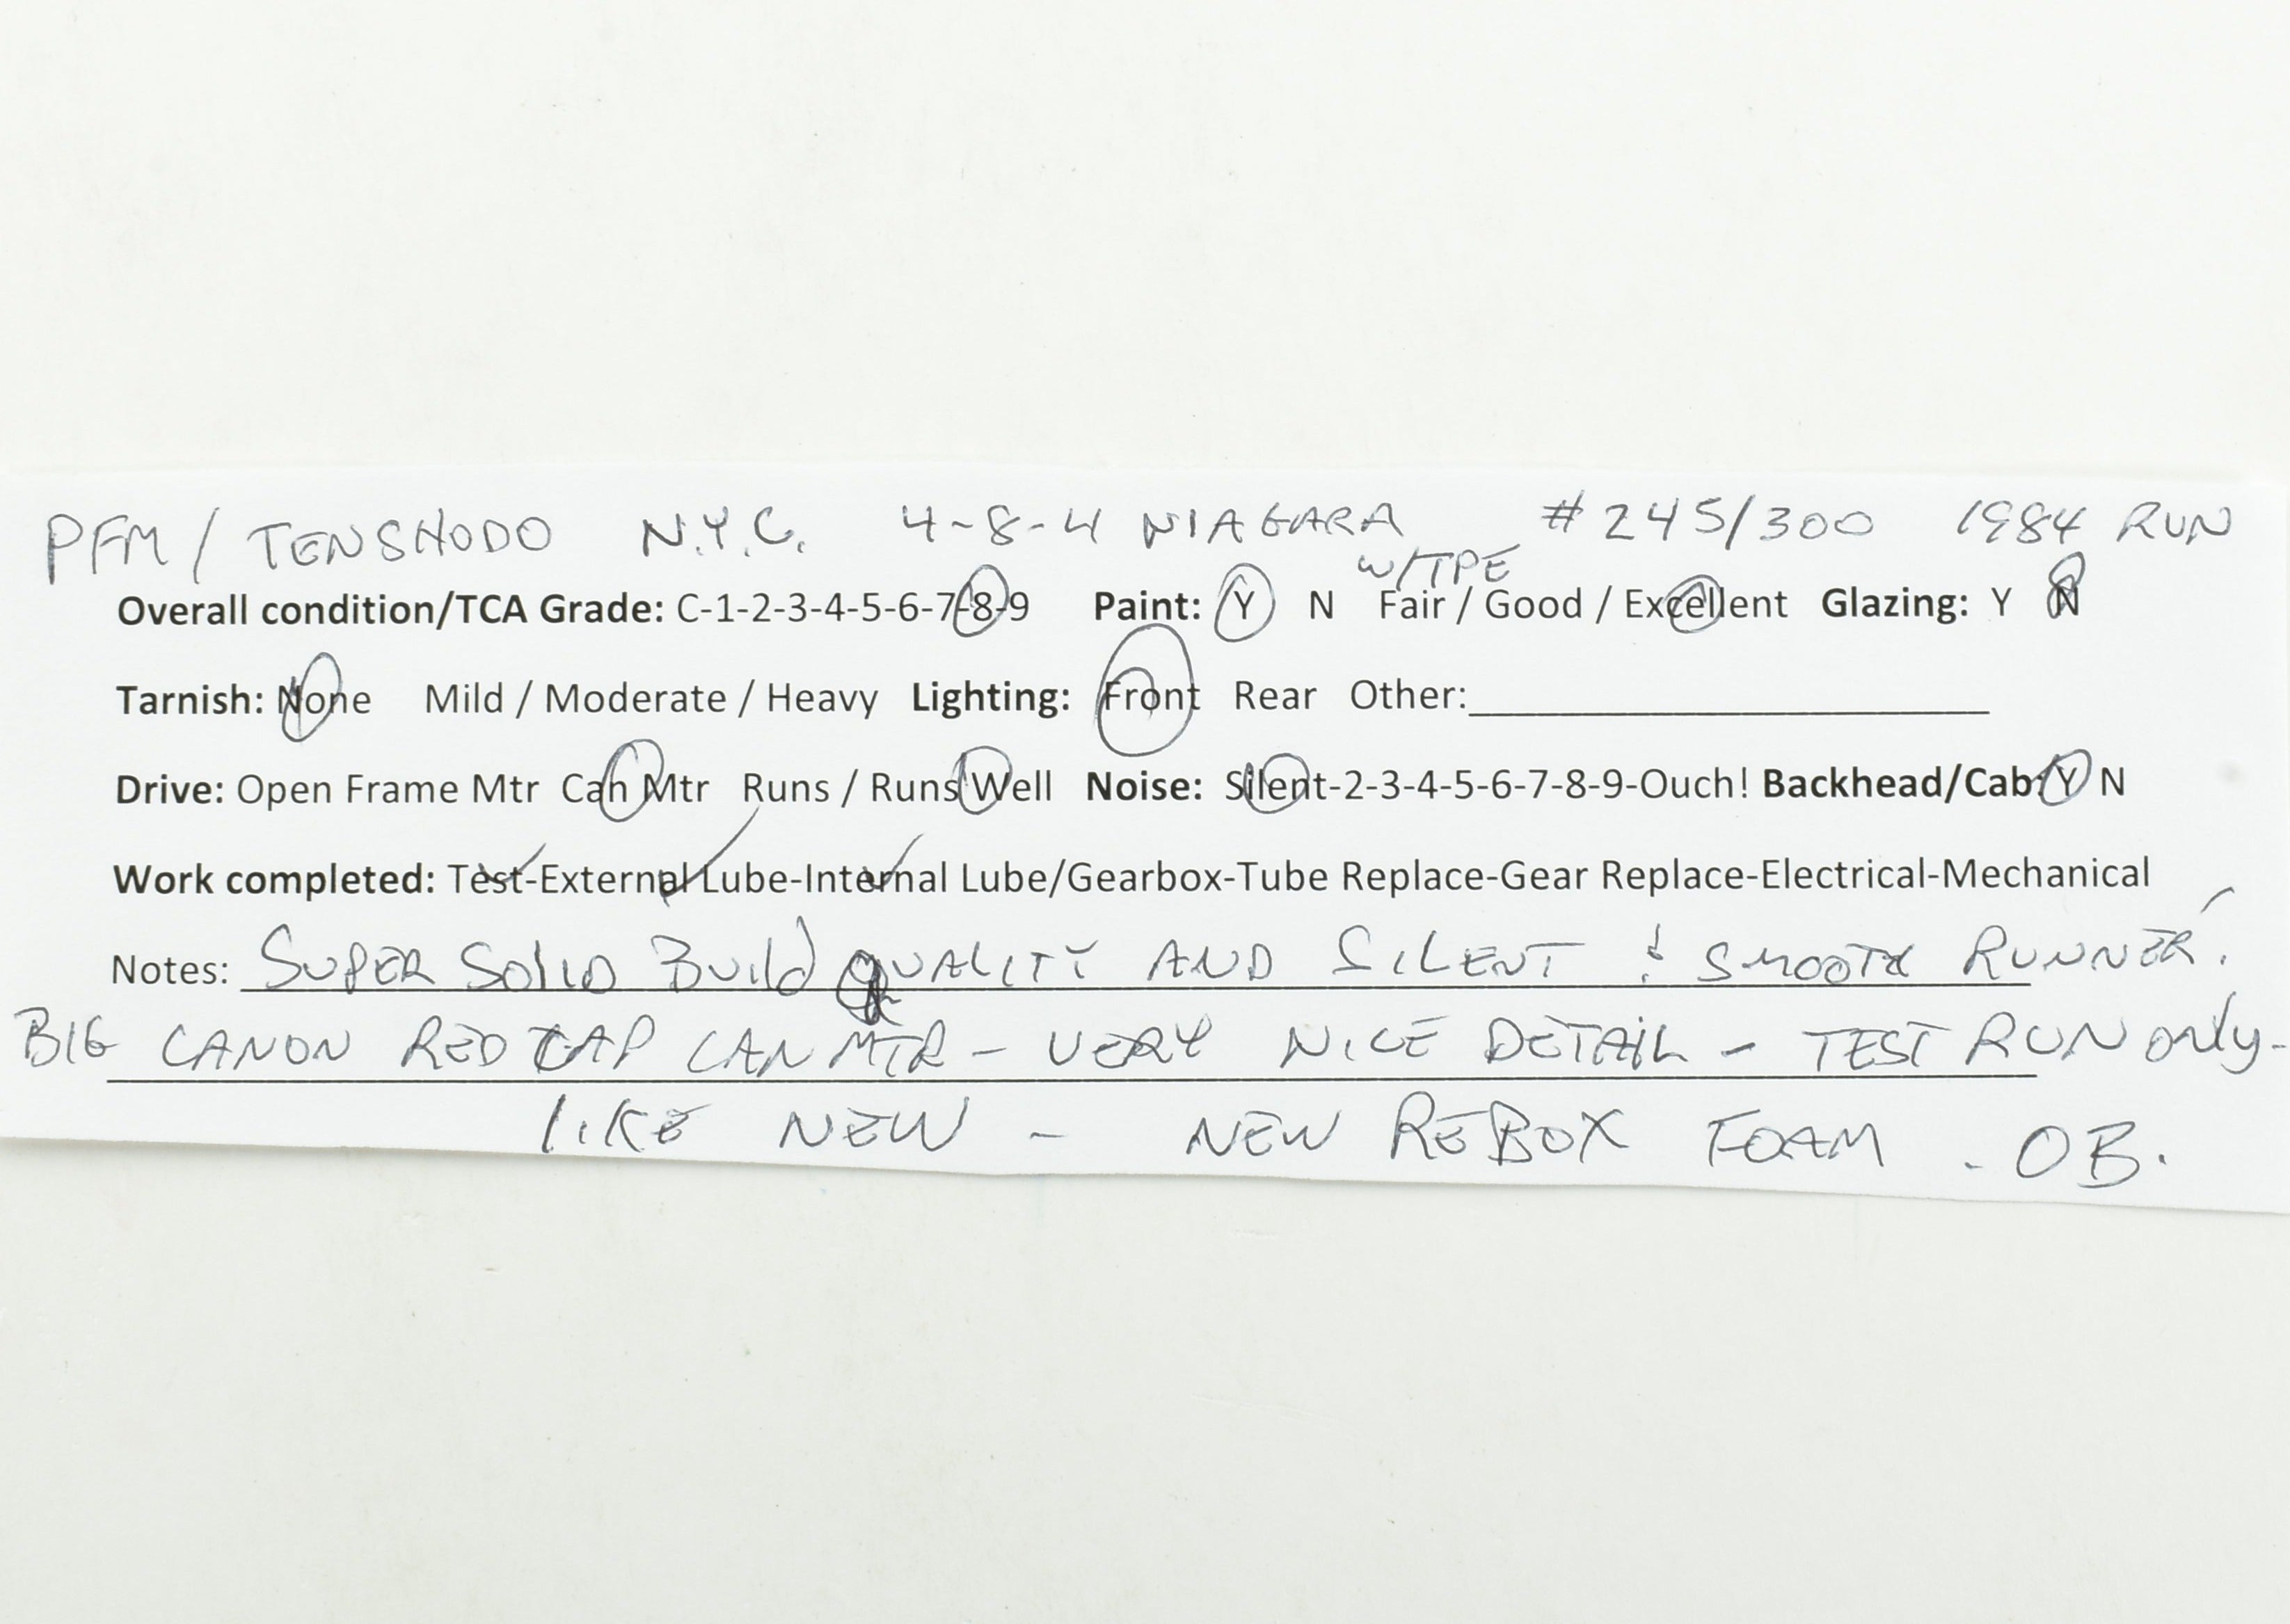 PFM / TENSHODO N.Y.C. 4-8-4 NIAGARA #245/300 1984 RUN
W/TPE
Overall condition/TCA Grade: C-1-2-3-4-5-6-7-8-9 Paint: Y N Fair / Good / Excellent Glazing: Y N
Tarnish: None Mild / Moderate / Heavy Lighting: Front Rear Other:
Drive: Open Frame Mtr Can Mtr Runs / Runs Well Noise: Silent-2-3-4-5-6-7-8-9-Ouch! Backhead/Cab: Y N
Work completed: Test-External Lube-Internal Lube/Gearbox-Tube Replace-Gear Replace-Electrical-Mechanical
Notes: SUPER SOLID BUILD QUALITY AND SILENT & SMOOTH RUNNER.
BIG CANON RED CAP CAN MTR - VERY NICE DETAIL - TEST RUN ONLY-
LIKE NEW - NEW REBOX FOAM - OB.